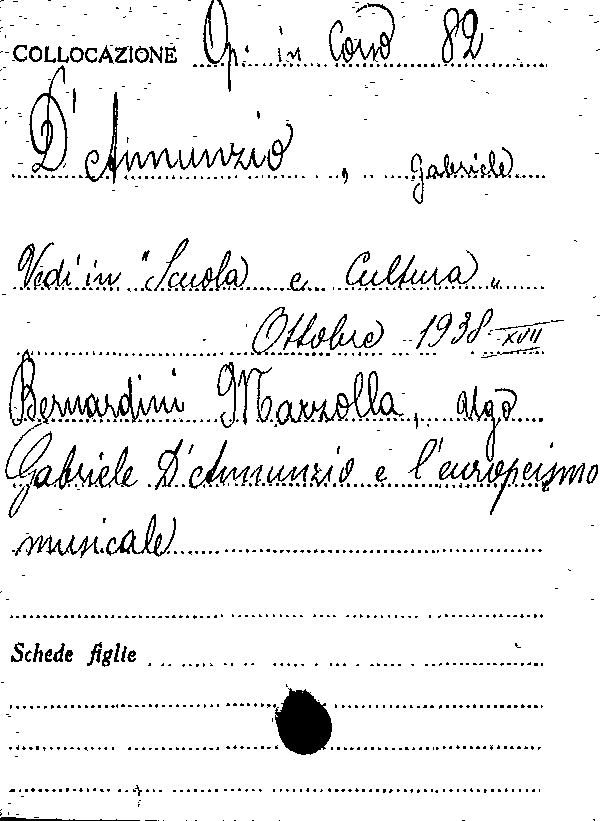 COLLOCAZIONE Op. in Corso 82
D'Annunzio, Gabriele
Vedi in "Scuola e Cultura"
Ottobre 1938 XVII
Bernardini Marzolla, Ugo
Gabriele D'Annunzio e l'europeismo
musicale
Schede figlie